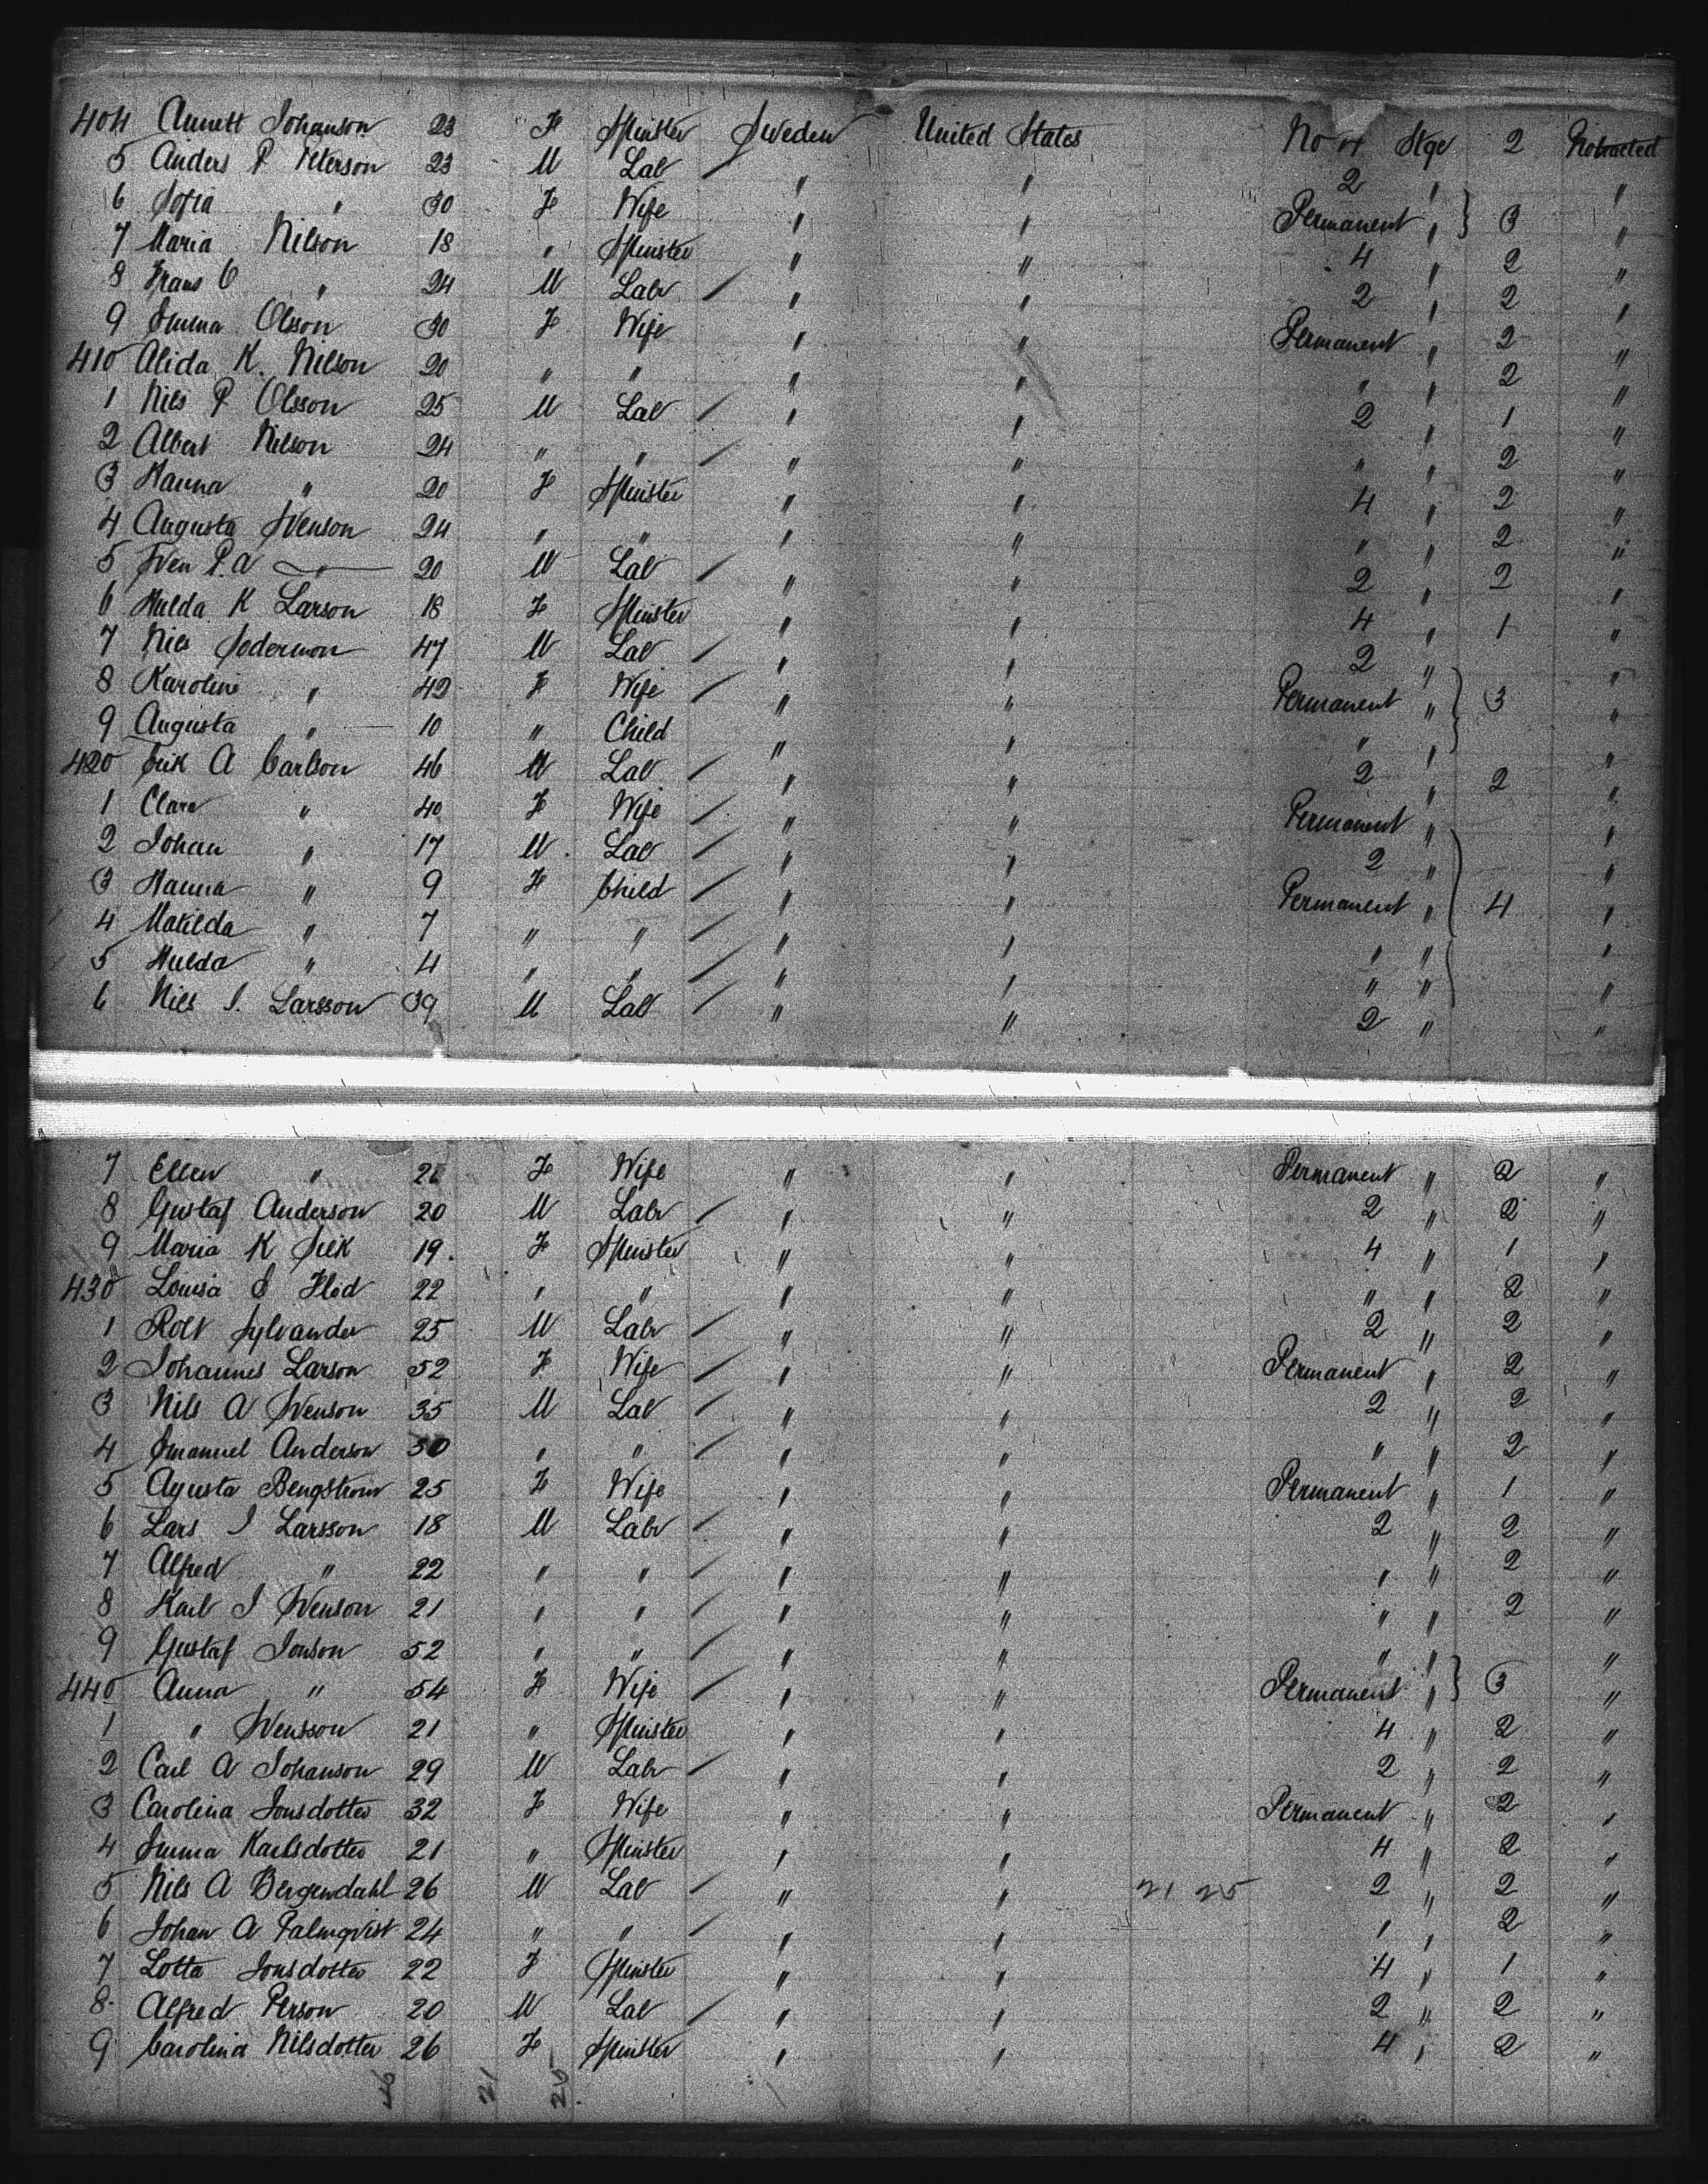 404 Annett Johanson 23 F Spinster Sweden United States No 4 Stge 2 Protracted
5 Anders P Peterson 23 M Lab " " 2 " "
6 Sofia " 30 F Wife " " Permanent " 3 "
7 Maria Nilson 18 " Spinster " " 4 " 2 "
8 Frans O " 24 M Labr " " 2 " 2 "
9 Emma Olsson 30 F Wife " " Permanent " 2 "
410 Alida K. Nilson 20 " " " " " " 2 "
1 Nils P Olsson 25 M Lab " " 2 " 1 "
2 Albert Nilson 24 " " " " " " 2 "
3 Hanna " 20 F Spinster " " 4 " 2 "
4 Augusta Svenson 24 " " " " " " 2 "
5 Sven P.A " 20 M Lab " " 2 " 2 "
6 Hulda K Larson 18 F Spinster " " 4 " 1 "
7 Nils Sodermon 47 M Lab " " 2 " "
8 Karolini " 42 F Wife " " Permanent " 3 "
9 Augusta " 10 " Child " " " " "
420 Erik A Carlson 46 M Lab " " 2 " 2 "
1 Clara " 40 F Wife " " Permanent " "
2 Johan " 17 M Lab " " 2 " "
3 Hanna " 9 F Child " " Permanent " 4 "
4 Matilda " 7 " " " " " " "
5 Hulda " 4 " " " " " " "
6 Nils J. Larsson 39 M Lab " " 2 " "
7 Ellen " F Wife " " Permanent " 2 "
8 Gustaf Anderson 20 M Labr " " 2 " 2 "
9 Maria K 19 F Spinster " " 4 " 1 "
430 Louisa 22 " " " " " " 2 "
1 Robt Sylvander 25 M Labr " " 2 " 2 "
2 Johannes Larson 52 F Wife " " Permanent " 2 "
3 Nils A Svenson 35 M Lab " " 2 " 2 "
4 Emanuel Anderson 30 " " " " " " 2 "
5 Agusta Bengstrom 25 F Wife " " Permanent " 1 "
6 Lars J Larsson 18 M Labr " " 2 " 2 "
7 Alfred " 22 " " " " " " 2 "
8 Karl J Svenson 21 " " " " " " 2 "
9 Gustaf Jonson 52 " " " " " " "
440 Anna " 54 F Wife " " Permanent " 3 "
1 " Svensson 21 " Spinster " " 4 " 2 "
2 Carl A Johanson 29 M Labr " " 2 " 2 "
3 Carolina Jonsdotter 32 F Wife " " Permanent " 2 "
4 Emma Karlsdotter 21 " Spinster " " 4 " 2 "
5 Nils A Bergendahl 26 M Lab " " 21 25 2 " 2 "
6 Johan A Palmqvist 24 " " " " " " 2 "
7 Lotta Jonsdotter 22 F Spinster " " 4 " 1 "
8 Alfred Person 20 M Lab " " 2 " 2 "
9 Carolina Nilsdotter 26 F Spinster " " 4 " 2 "
46 21 25